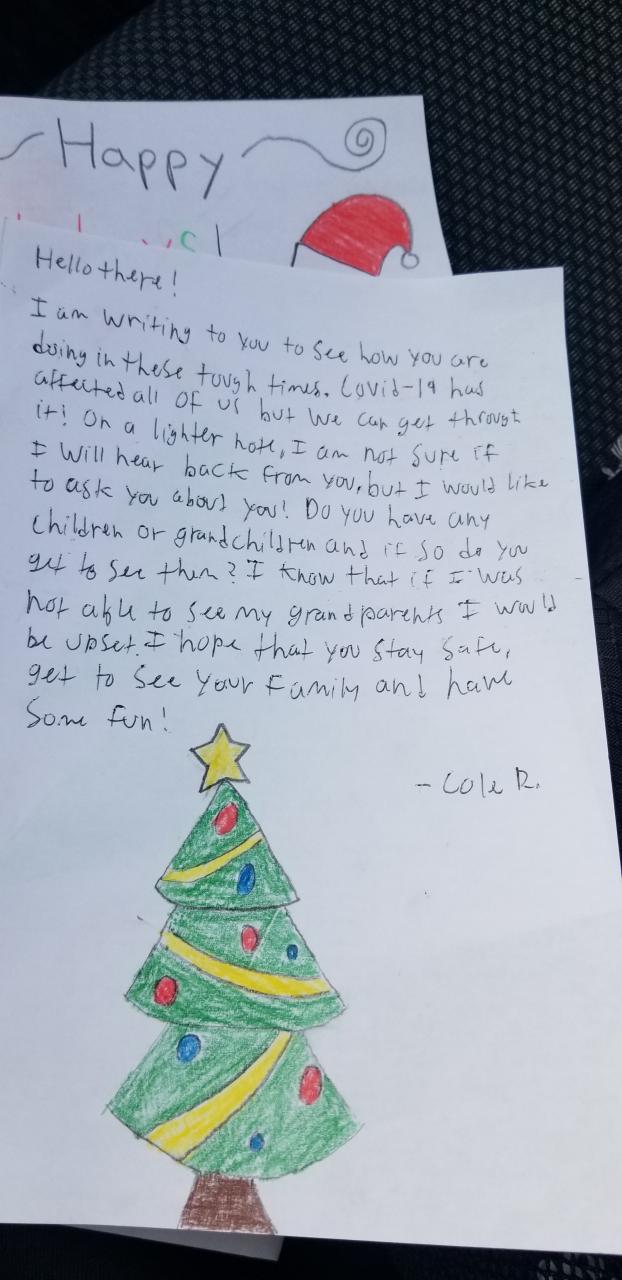 Happy
Hello there!
I am writing to you to see how you are
doing in these tough times. Covid-19 has
affected all of us but we can get through
it! On a lighter note, I am not sure if
I will hear back from you, but I would like
to ask you about you! Do you have any
children or grandchildren and if so do you
get to see them? I know that if I was
not able to see my grandparents I would
be upset. I hope that you stay safe,
get to see your family and have
some fun!
- Cole R.